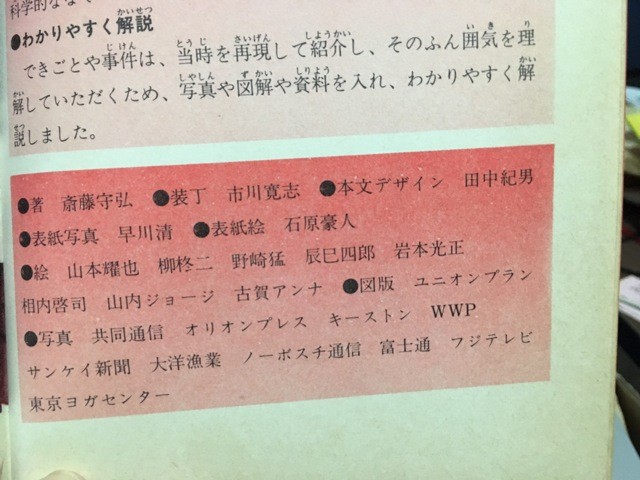 科学的なな
●わかりやすく解説
できごとや事件は、当時を再現して紹介し、そのふん囲気を理
解していただくため、写真や図解や資料を入れ、わかりやすく解
説しました。
●著 斎藤守弘 ●装丁 市川寛志 ●本文デザイン 田中紀男
●表紙写真 早川清 ●表紙絵 石原豪人
●絵 山本耀也 柳柊二 野崎猛 辰巳四郎 岩本光正
相内啓司 山内ジョージ 古賀アンナ ●図版 ユニオンプラン
●写真 共同通信 オリオンプレス キーストン WWP
サンケイ新聞 大洋漁業 ノーボスチ通信 富士通 フジテレビ
東京ヨガセンター